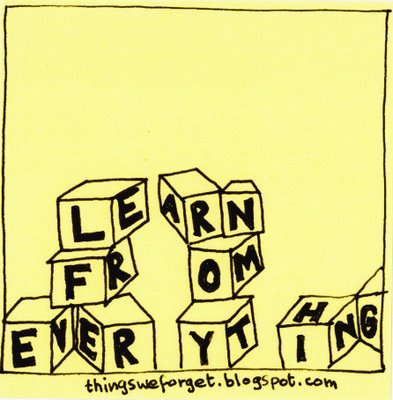 LEARN
FROM
EVERYTHING
thingsweforget.blogspot.com